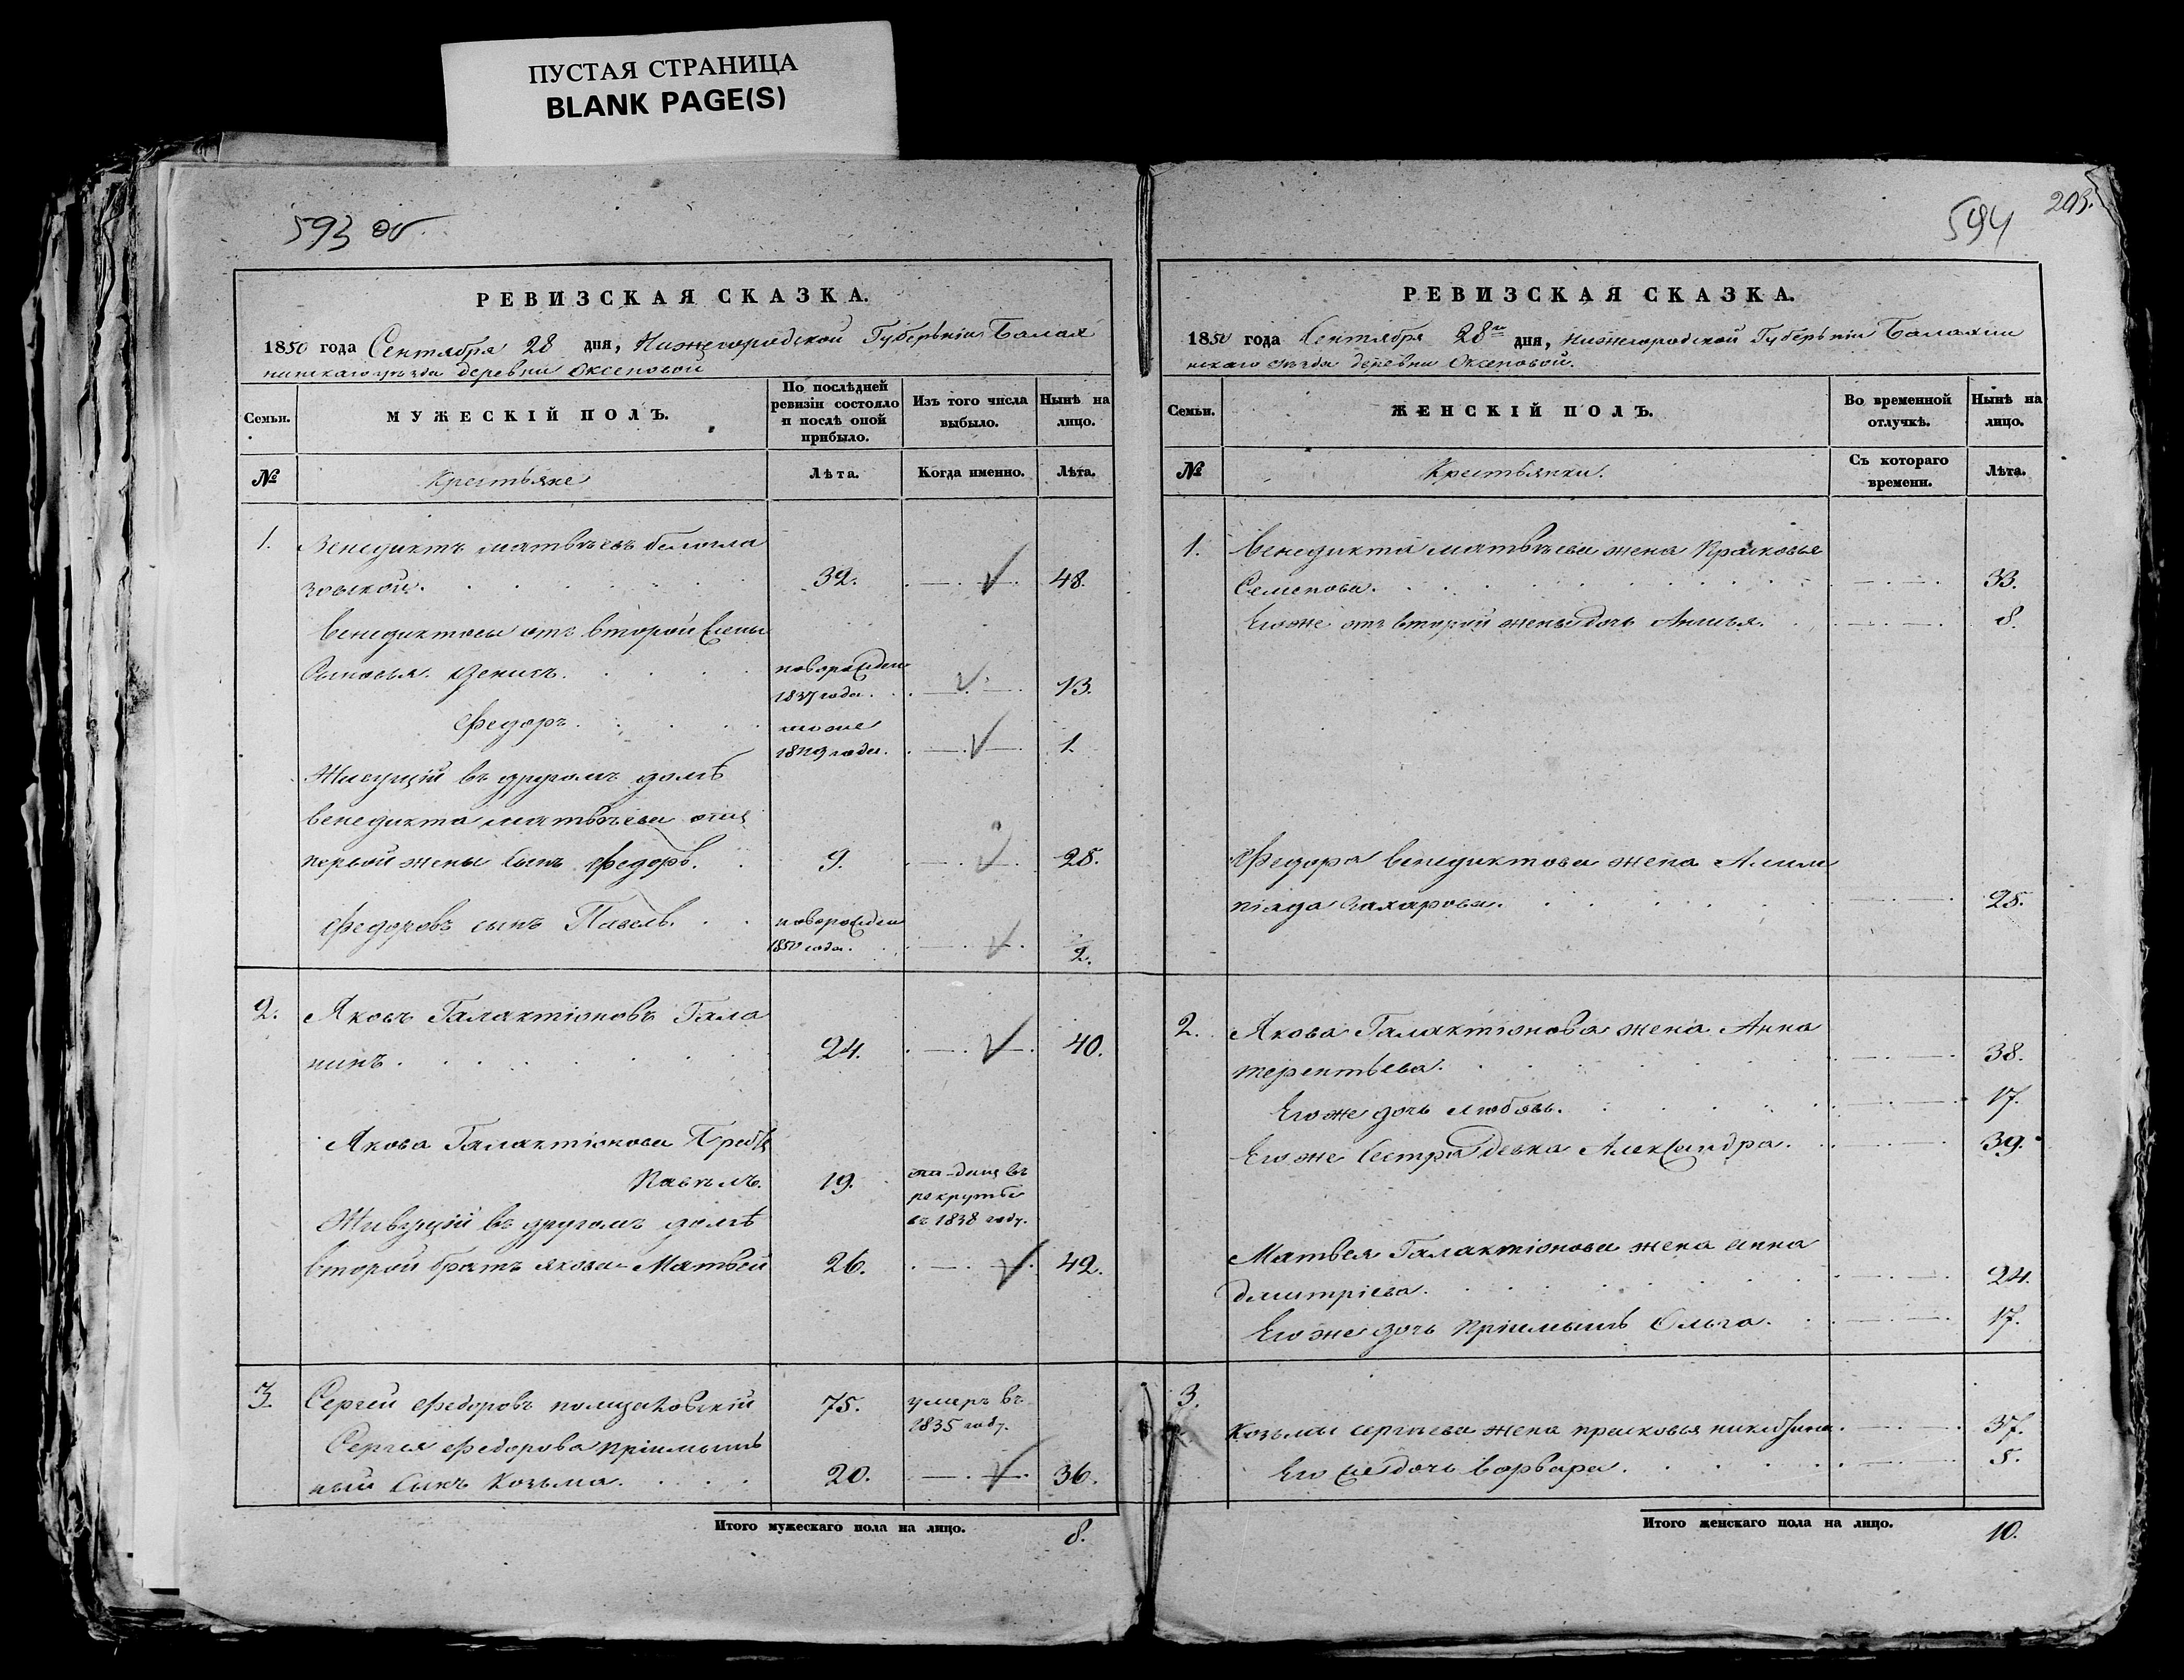 ПУСТАЯ СТРАНИЦА
BLANK PAGE(S)
593 об
РЕВИЗСКАЯ СКАЗКА.
1850 года Сентября 28 дня, Нижегородской Губерніи Балах
нинскаго уѣзда деревни Оксеновой
Семьи.
МУЖЕСКІЙ ПОЛЪ.
По послѣдней
ревизіи состояло
и послѣ оной
прибыло.
Изъ того числа
выбыло.
Нынѣ на
лицо.
№
Крестьяне
Лѣта.
Когда именно.
Лѣта.
1. Венедиктъ матвѣевъ белогла
зовской. 32. 48.
Венедиктовы отъ второй жены
Сыновья Денисъ. новорожден
1837 года. 13.
Федоръ. тоже
1849 года. 1.
Живущій въ другомъ домѣ
венедикта матвѣева отъ
первой жены сынъ федоръ. 9. 25.
федоровъ сынъ Павелъ. новорожден
1850 года. 2.
2. Яковъ Галактіоновъ Гала
нинъ. 24. 40.
Якова Галактіонова
19. отдан въ
рекруты
въ 1838 году.
Живущій въ другомъ домѣ
второй братъ якова Матвей 26. 42.
3. Сергей федоровъ 75. умеръ въ
1835 году.
Сергея федорова пріимыш
ный сынъ Козьма. 20. 36.
Итого мужескаго пола на лицо. 8.
594
205.
РЕВИЗСКАЯ СКАЗКА.
1850 года Сентября 28 дня, Нижегородской Губерніи Балахни
нскаго уѣзда деревни Оксеновой.
Семьи.
ЖЕНСКІЙ ПОЛЪ.
Во временной
отлучкѣ.
Нынѣ на
лицо.
№
Крестьянки.
Съ котораго
времени.
Лѣта.
1. Венедикта матвѣева жена Прасковья
Семенова. 33.
Его же отъ второй жены дочь 8.
Федора венедиктова жена Алим
піада Захарова. 25.
2. Якова Галактіонова жена Анна
терентьева. 38.
Его же дочь любовь. 17.
Его же сестра девка Александра. 39.
Матвея Галактіонова жена анна
дмитріева. 24.
Его же дочь пріимышъ Ольга. 17.
3.
Козьмы сергѣева жена прасковья 37.
Его же дочь варвара. 5.
Итого женскаго пола на лицо. 10.